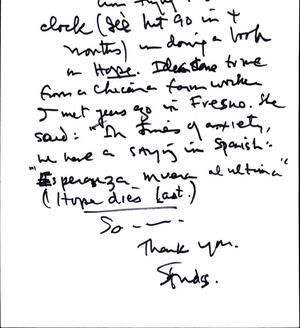 am trying t
clock (I'll hit 90 in 4
months) in doing a book
on Hope. Idea came to me
from a Chicana farm worker
I met years ago in Fresno. She
said: "In times of anxiety,
we have a saying in Spanish:
"Esperanza muera al ultima"
(Hope dies last.)
So ----
Thank you.
Studs.